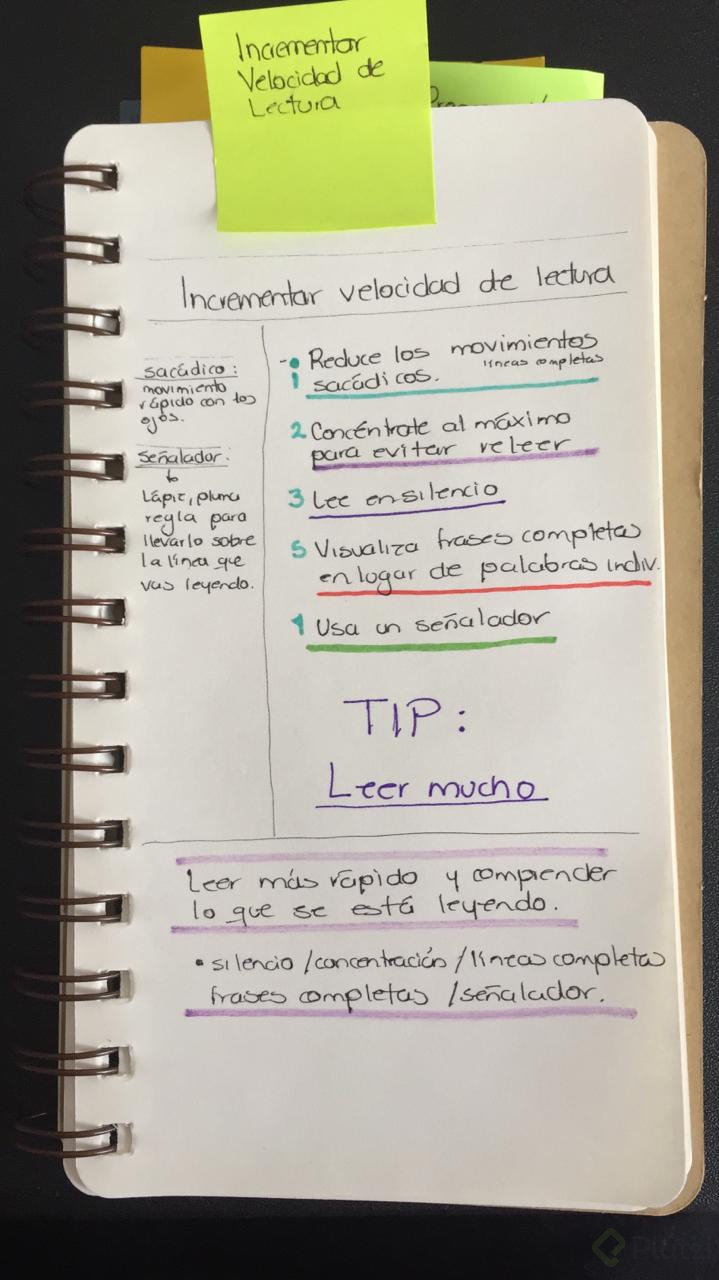 Incrementar
Velocidad de
Lectura
Incrementar velocidad de lectura
sacádico:
movimiento
rápido con los
ojos.
señalador:
Lápiz, pluma
regla para
llevarlo sobre
la línea que
vas leyendo.
1 Reduce los movimientos
líneas completas
sacádicos.
2 Concéntrate al máximo
para evitar releer
3 Lee en silencio
5 Visualiza frases completas
en lugar de palabras indiv.
1 Usa un señalador
TIP:
Leer mucho
Leer más rápido y comprender
lo que se está leyendo.
• silencio /concentración /líneas completas
frases completas /señalador.